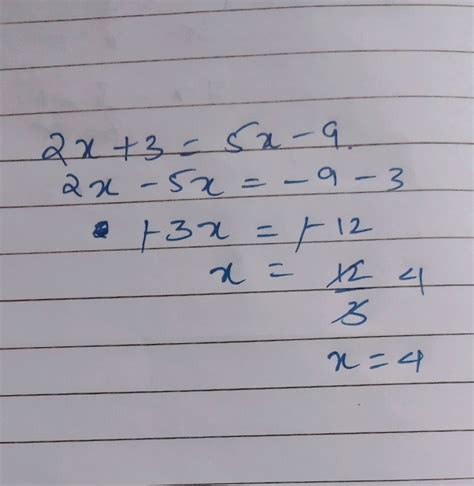 2x + 3 = 5x - 9.
2x - 5x = -9 - 3
-3x = -12
x = 12/3 4
x = 4